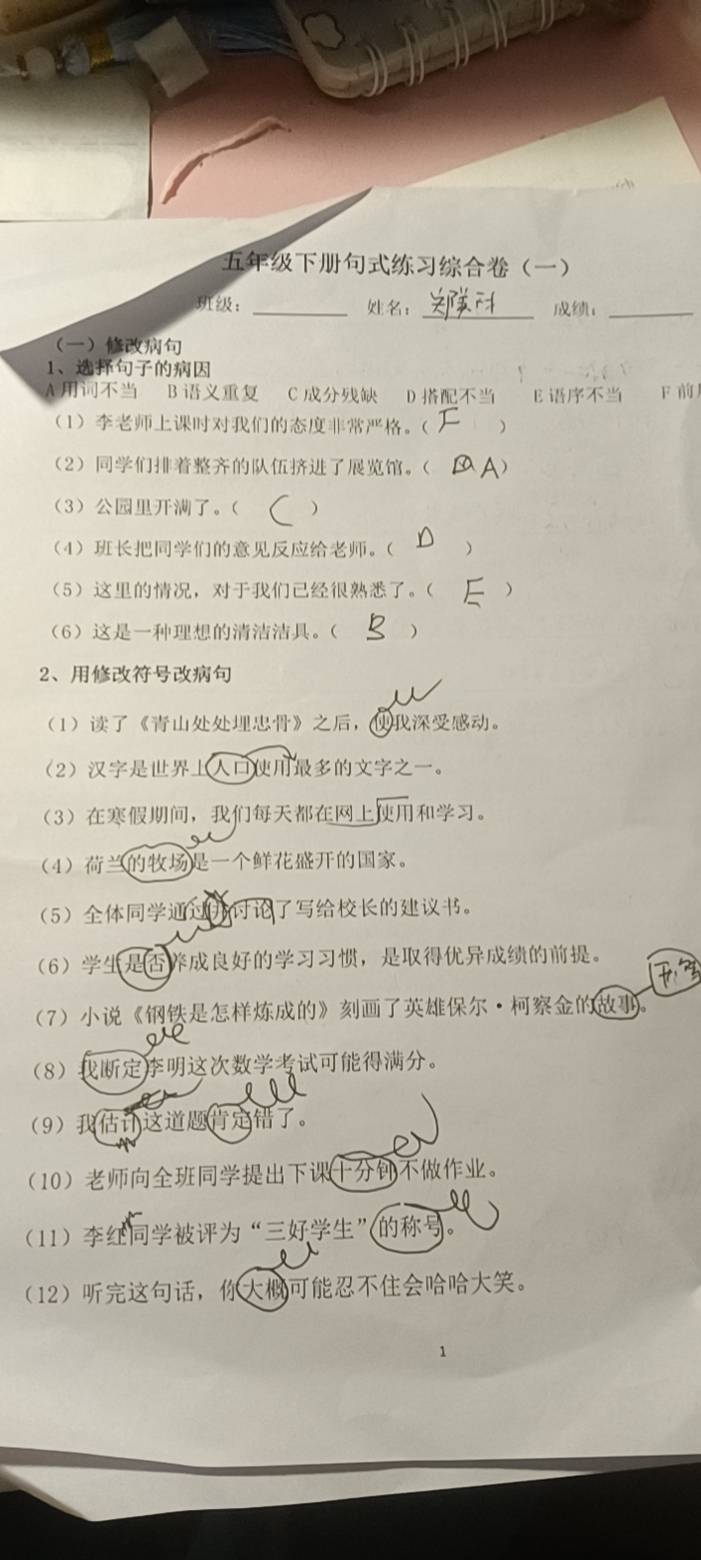 五年级下册句式练习综合卷（一）
班级： 姓名： 成绩：
（一）修改病句
1、选择句子的病因
A 用词不当 B 语义重复 C 成分残缺 D 搭配不当 E 语序不当 F 前
（1）李老师上课时对我们的态度非常严格。（ F ）
（2）同学们排着整齐的队伍挤进了展览馆。（ A）
（3）公园里开满了。（ C ）
（4）班长把同学们的意见反应给老师。（ D ）
（5）这里的情况，对于我们已经很熟悉了。（ E ）
（6）这是一种理想的清洁洁具。（ B ）
2、用修改符号改病句
（1）读了《青山处处埋忠骨》之后，使我深受感动。
（2）汉字是世界上人口使用最多的文字之一。
（3）在寒假期间，我们每天都在网上使用和学习。
（4）荷兰的牧场是一个鲜花盛开的国家。
（5）全体同学通过并讨论了写给校长的建议书。
（6）学生是否养成良好的学习习惯，是取得优异成绩的前提。
形象
（7）小说《钢铁是怎样炼成的》刻画了英雄保尔·柯察金的故事。
（8）我断定李明这次数学考试可能得满分。
（9）我估计这道题肯定错了。
（10）老师向全班同学提出下课十分钟不做作业。
（11）李红同学被评为“三好学生”的称号。
（12）听完这句话，你大概可能忍不住会哈哈大笑。
1